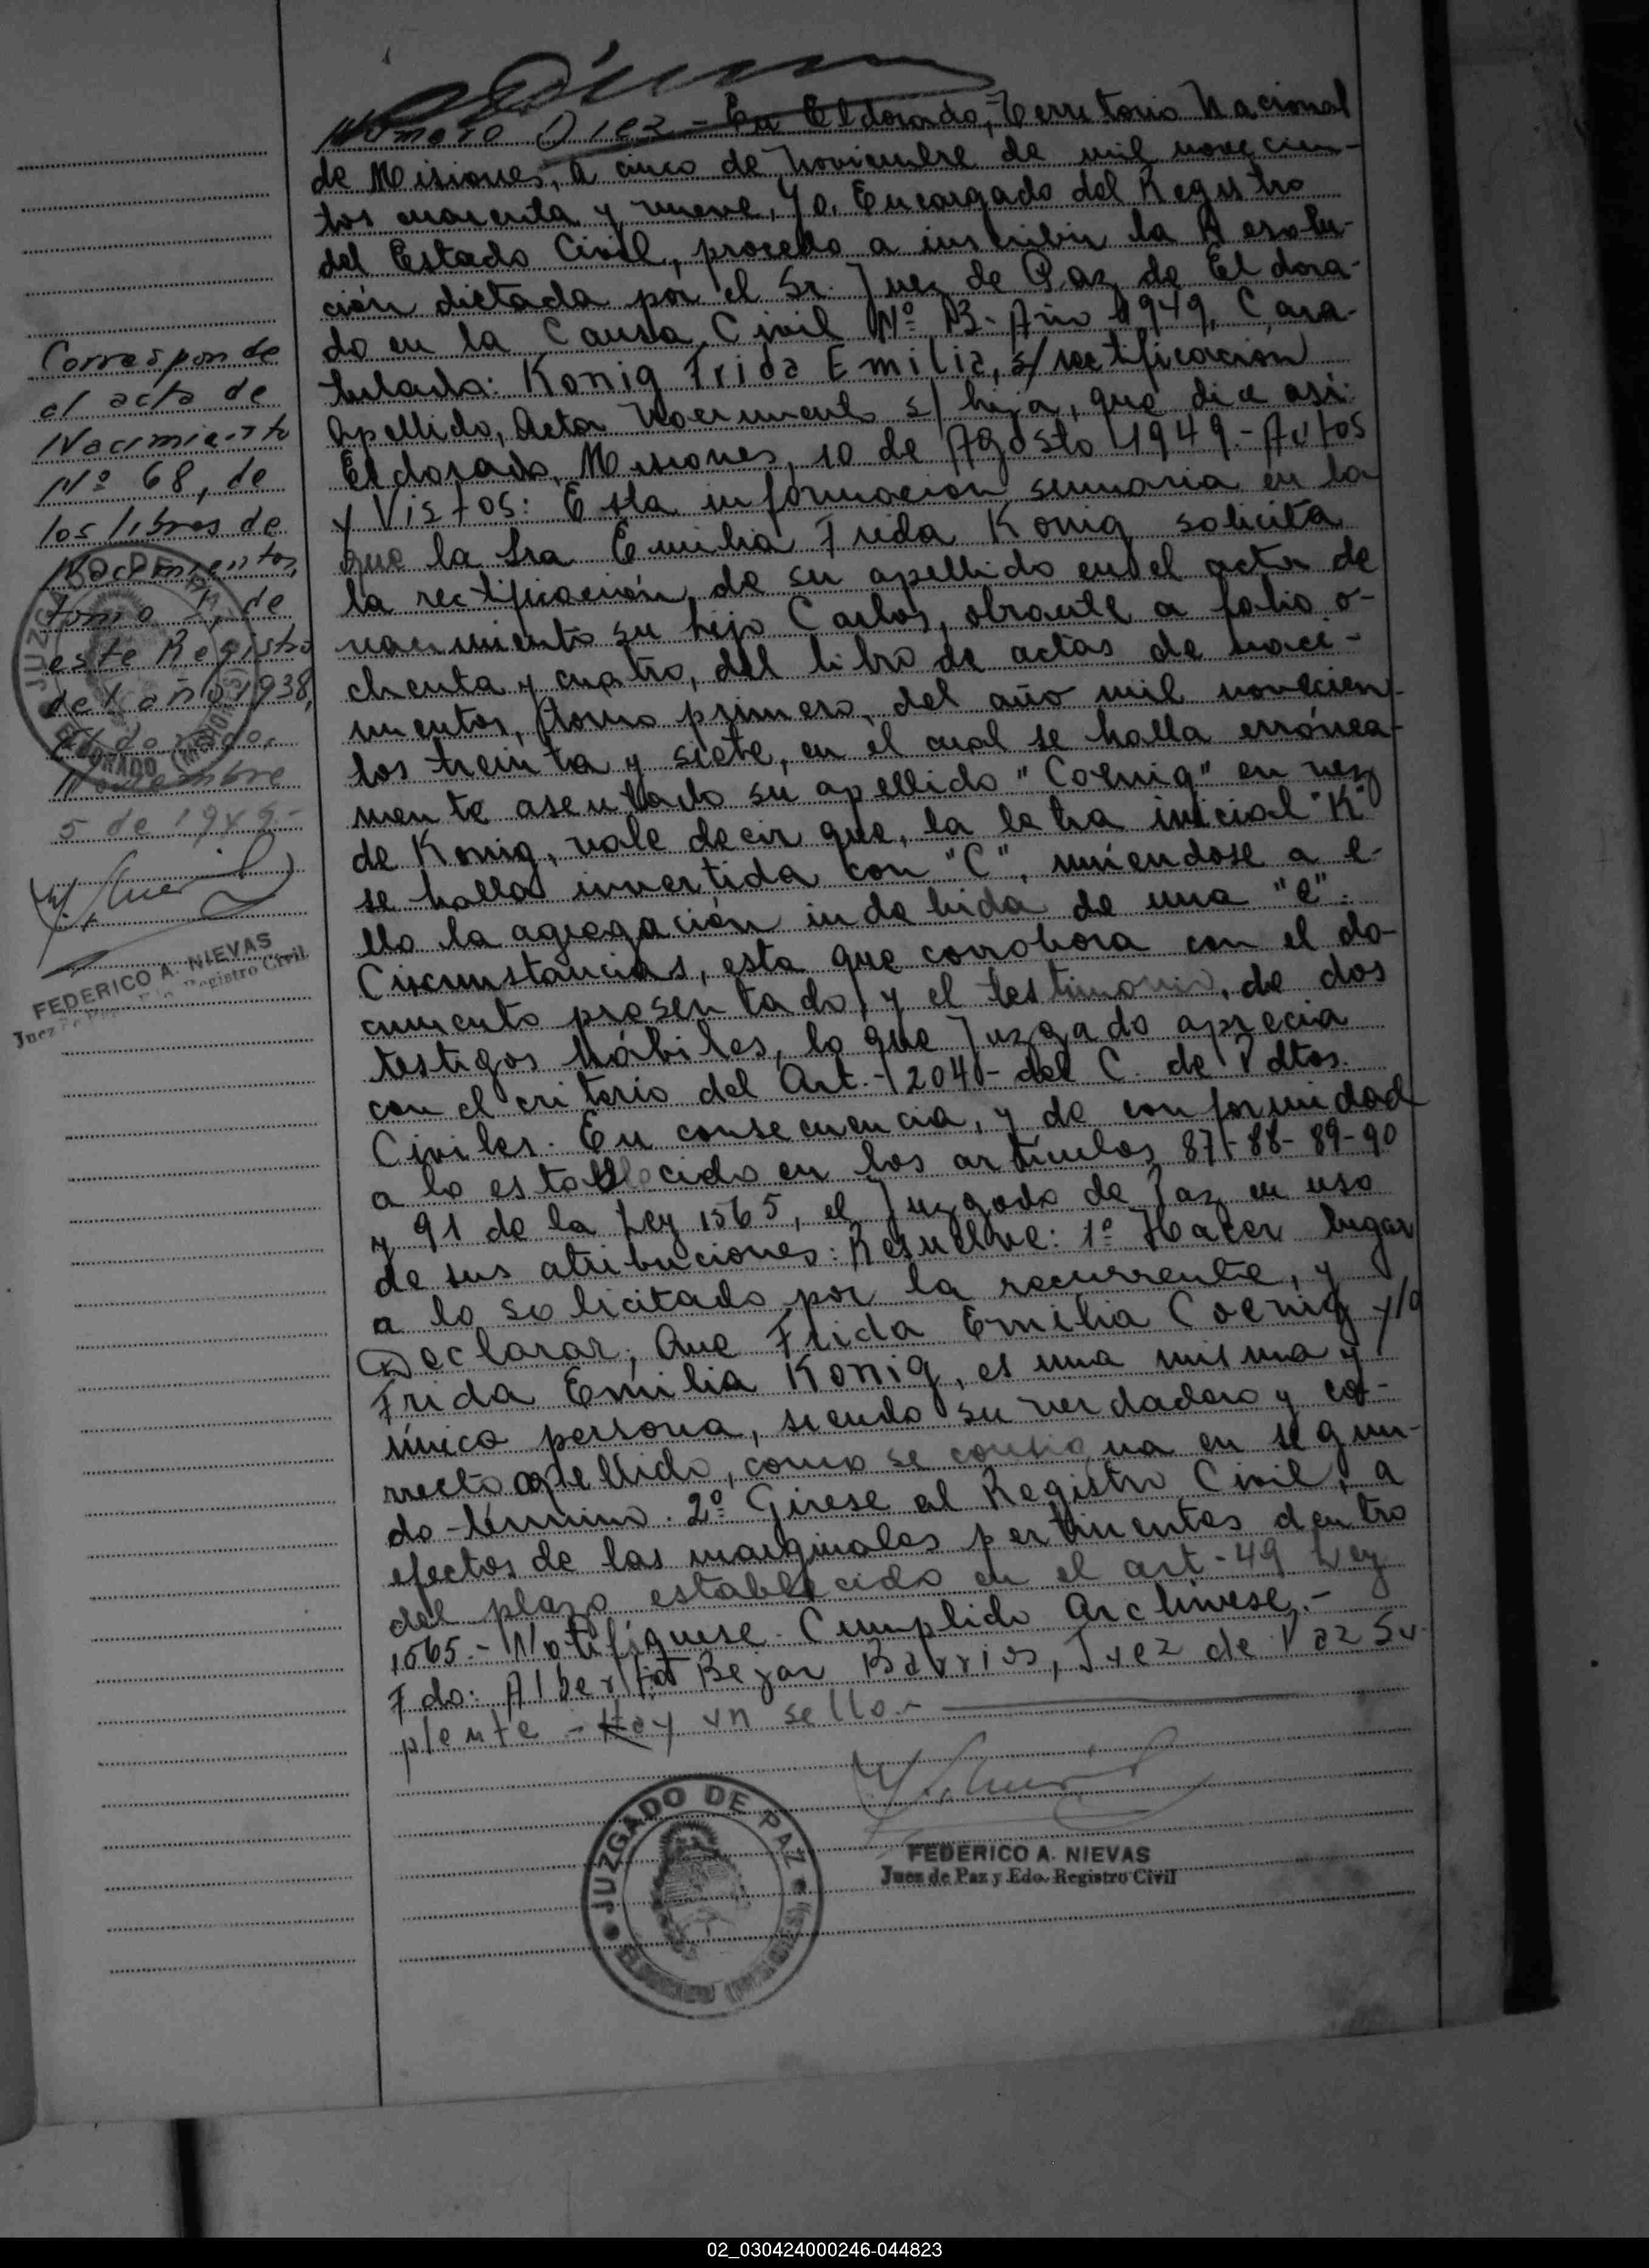 Número Diez - En Eldorado, Territorio Nacional
de Misiones, a cinco de Noviembre de mil novecien-
tos cuarenta y nueve, Yo, Encargado del Registro
del Estado Civil, procedo a inscribir la Resolu-
ción dictada por el Sr. Juez de Paz de Eldora-
do en la Causa Civil Nº - Año 1949, Cara-
tulada: Konig Frida Emilia, s/ rectificación
apellido, Acta Nacimiento s/ hija, que dice así:
Eldorado, Misiones, 10 de Agosto 1949.- Autos
y Vistos: Esta información sumaria en la
que la Sra Emilia Frida Konig solicita
la rectificación de su apellido en el acta de
nacimiento su hijo Carlos, obrante a folio o-
chenta y cuatro, del libro de actas de naci-
mientos, tomo primero, del año mil novecien-
tos treinta y siete, en el cual se halla erronea-
mente asentado su apellido "Coenig" en vez
de Konig, vale decir que, la letra inicial "K"
se halla invertida con "C", uniendose a e-
llo la agregación indebida de una "e".
Circunstancias, esta que corrobora con el do-
cumento presentado y el testimonio, de dos
testigos hábiles, lo que Juzgado aprecia
con el criterio del Art.- 204 - del C. de Pdtos.
Civiles. En consecuencia, y de conformidad
a lo establecido en los artículos 87-88-89-90
y 91 de la Ley 1565, el Juzgado de Paz en uso
de sus atribuciones: Resuelve: 1º Hacer lugar
a lo solicitado por la recurrente, y
Declarar; Que Frida Emilia Coenig y/o
Frida Emilia Konig, es una misma y
única persona, siendo su verdadero y co-
rrecto apellido, como se consigna en segun-
do término. 2º Girese al Registro Civil, a
efectos de las marginales pertinentes dentro
del plazo establecido en el art-49 Ley
1565.- Notifíquese. Cumplido Archivese.-
Fdo: Alberto Bejar Barrios, Juez de Paz Su-
plente - Hay un sello.-
FEDERICO A. NIEVAS
Juez de Paz y Edo. Registro Civil
JUZGADO DE PAZ
ELDORADO (MISIONES)
Corresponde
al acta de
Nacimiento
Nº 68, de
los libros de
Nacimientos,
tomo I, de
este Registro
del año 1938,
Eldorado,
Noviembre
5 de 1949.-
FEDERICO A. NIEVAS
Juez de Paz y Edo. Registro Civil
JUZGADO DE PAZ
ELDORADO (MISIONES)
02_030424000246-044823